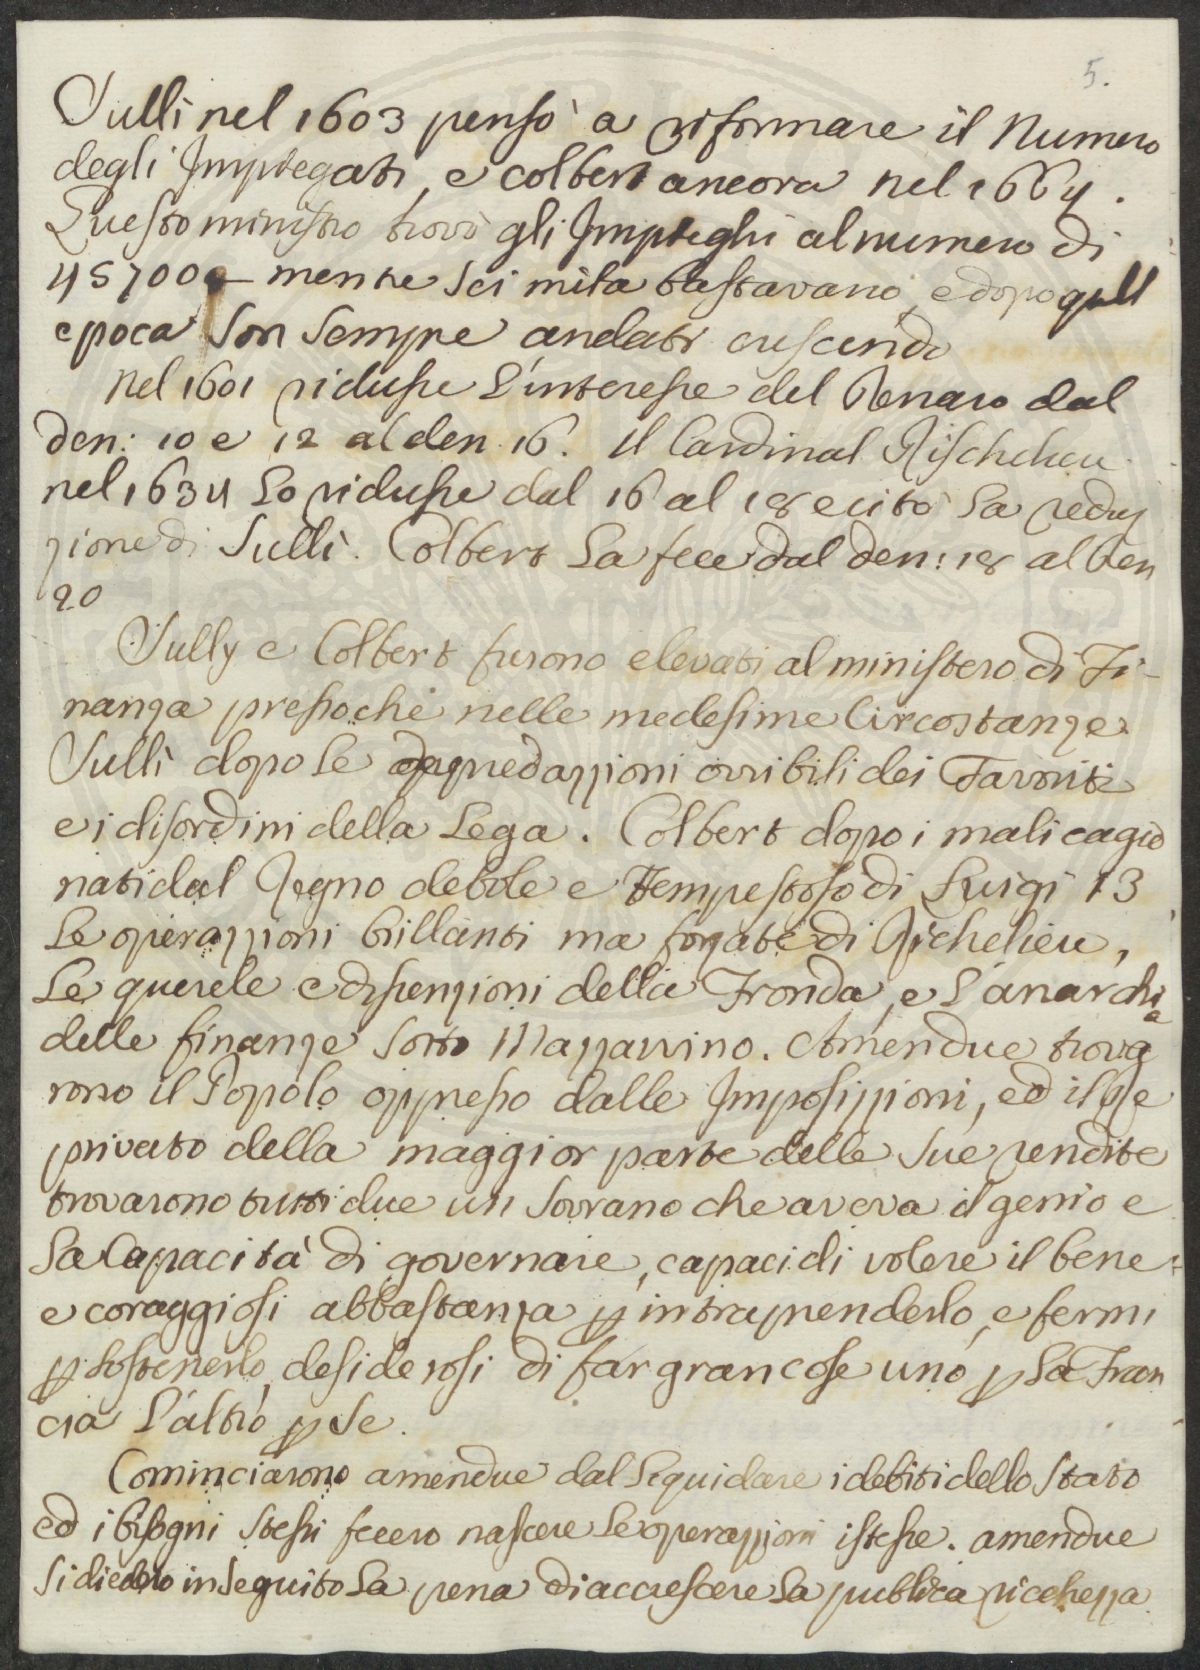 5.
Sulli nel 1603 pensò a riformare il Numero
degli Impiegati, e Colbert ancora nel 1664.
Questo ministro trovò gli Impieghi al numero di
45700 mentre sei mila bastavano, e dopo quell
epoca son sempre andati crescendo
Nel 1601 ridusse L'interesse del Denaro dal
den: 10 e 12 al den. 16. Il Cardinal Rischelieu
nel 1634 Lo ridusse dal 16 al 18 e citò La redu
zione di Sulli. Colbert La fece dal den: 18 al Den
20
Sully e Colbert furono elevati al ministero di Fi-
nanza pressoche nelle medesime Circostanze.
Sulli dopo Le depredazzioni orribili dei Favoriti
e i disordini della Lega. Colbert dopo i mali cagio
nati dal Regno debole e Tempestoso di Luigi 13
Le operazzioni brillanti ma forzate di Richelieu,
Le querele e dissenzioni della Fronda, e L'anarchia
delle finanze sotto Mazzarrino. Amendue trova
rono il Popolo oppresso dalle Imposizzioni, ed il Re
privato della maggior parte delle sue rendite
trovarono tutti due un Sovrano che aveva il genio e
La Capacità di governare, capaci di volere il bene
e coraggiosi abbastanza p intraprenderlo, e fermi
p sostenerlo, desiderosi di far gran cose uno p La Fran
cia L'altro p se.
Cominciarono amendue dal Liquidare i debiti dello Stato
ed i bisogni stessi fecero nascere Le operazzioni istesse. amendue
si diedero in seguito La pena di accrescere La publica ricchezza